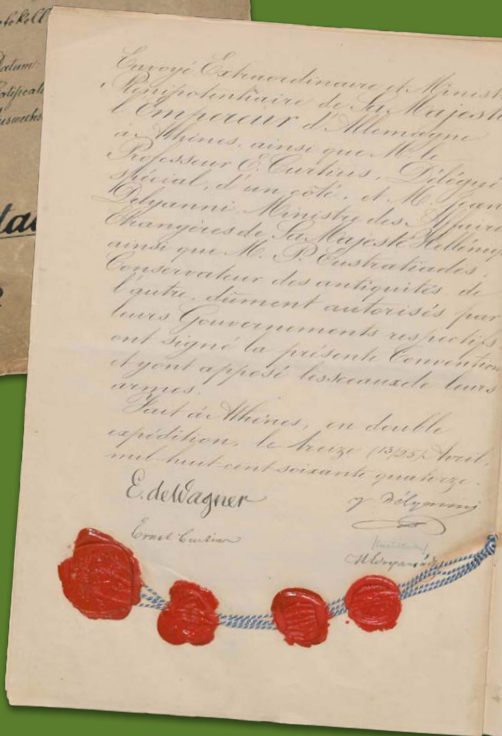 otokoll
Datum:
Envoyé Extraordinaire et Minist
Plénipotentiaire de Sa Majesté
l'Empereur d'Allemagne
à Athènes, ainsi que M. le
Professeur E. Curtius, Délégué
spécial, d'un côté, et M. Jean
Delyanni Ministre des Affaire
Etrangères de Sa Majesté Helléniq
ainsi que M. P. Eustratiades,
Conservateur des antiquités de
l'autre, dûment autorisés par
leurs Gouvernements respectifs
ont signé la présente Convention
et y ont apposé les sceaux de leurs
armes.
Fait à Athènes, en double
expédition, le treize (13/25) Avril,
mil huit cent soixante quatorze.
E. de Wagner
J Délyanni
Ernst Curtius